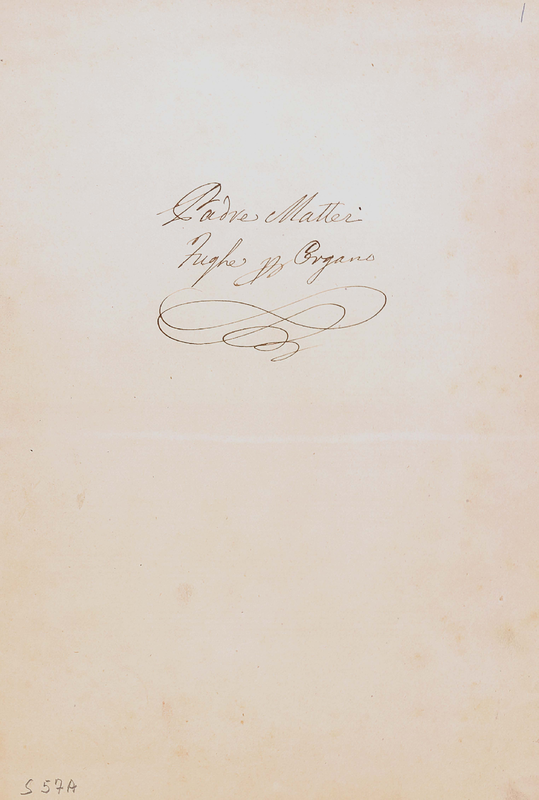 1
Padre Mattei
Fughe p Organo
S 57A